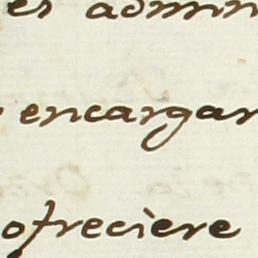 es admin
encargar
ofreciere